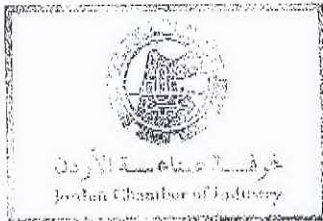 غرفة صناعة الأردن
Jordan Chamber of Industry